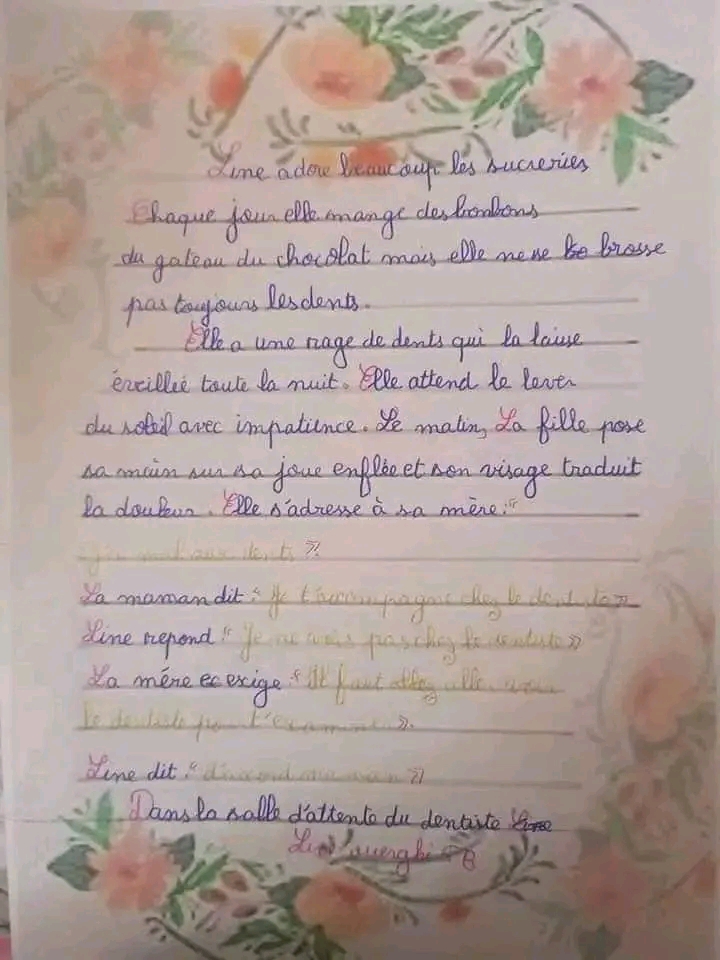 Line adore beaucoup les sucreries
Chaque jour elle mange des bonbons
du gateau du chocolat mais elle ne se brosse
pas toujours les dents.
Elle a une rage de dents qui la laisse
éveillée toute la nuit. Elle attend le lever
du soleil avec impatience. Le matin, La fille pose
sa main sur sa joue enflée et son visage traduit
la douleur. Elle s'adresse à sa mère: "
J'ai mal aux dents ».
La maman dit " Je t'accompagne chez le dentiste »
Line repond " Je ne vais pas chez le dentiste »
La mére exige " Il faut aller voir
le dentiste pour t'examiner ».
Line dit " d'accord maman »
Dans la salle d'attente du dentiste Line